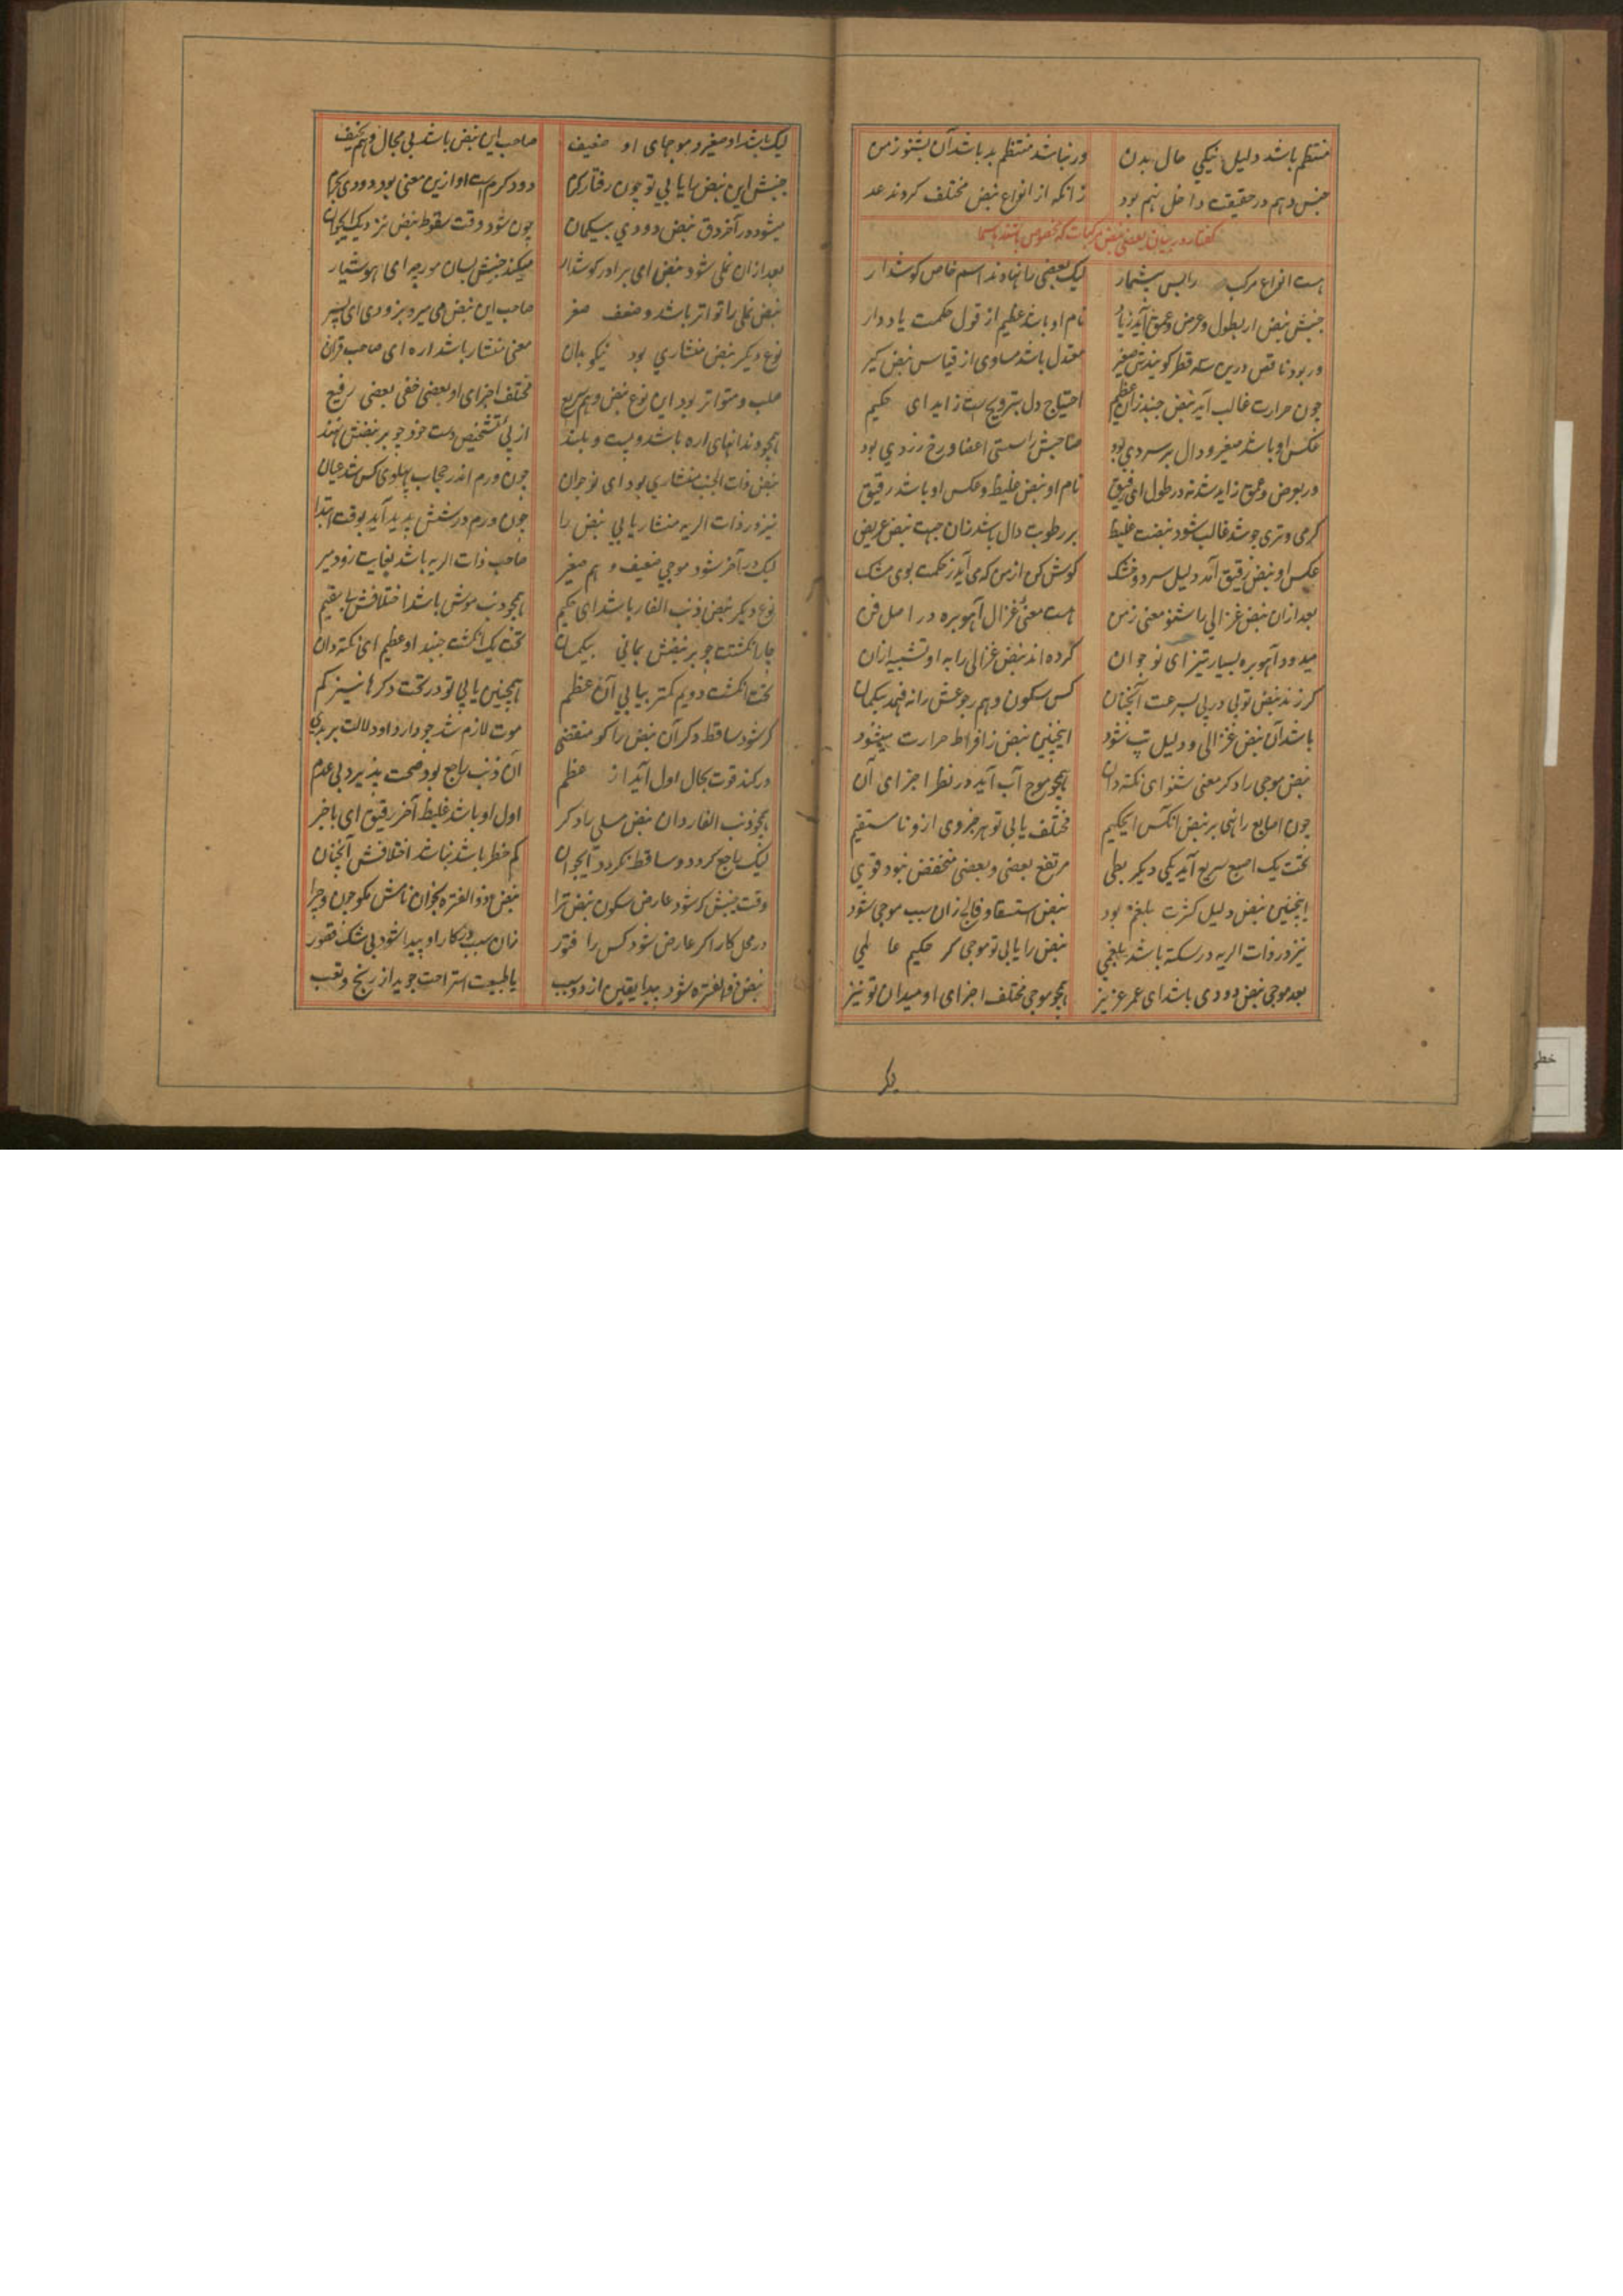 منتظم باشد دلیل نیکی حال بدن ور نباشد منتظم بد باشد آن بشنو ز من
جنس دهم در حقیقت داخل نهم بود زانکه از انواع نبض مختلف کردند عد
کفتار در بیان بعضی نبض مرکبات که مخصوص باشند باسما
هست انواع مرکب را بس بیشمار لیک بعضی را نهادند اسم خاص کوشدار
جنبش نبض ار بطول و عرض و عمق آید زیاد نام او باشد عظیم از قول حکمت یاد دار
ور بود ناقص درین سه قطر کویندش صغیر معتدل باشد مساوی از قیاس نبض کیر
چون حرارت غالب آید نبض جنبد زان عظیم احتیاج دل بترویح است زاید ای حکیم
عکس او باشد صغیر و دال بر سردی بود صاحبش را سستی اعضا و رخ زردی بود
ور بعرض و عمق زاید شد نه در طول ای رفیق نام او نبض غلیظ و عکس او باشد رقیق
کرمی و تری چو شد غالب شود نبضت غلیظ بر رطوبت دال باشد زان جهت نبض عریض
عکس او نبض رقیق آمد دلیل سرد و خشک کوش کن از من که می آید ز حکمت بوی مشک
بعد ازان نبض غزالی را شنو معنی ز من هست معنی غزال آهو بره در اصل فن
میدود آهو بره بسیار تیز ای نوجوان کرده اند نبض غزالی را به او تشبیه ازان
کر زند نبض تو پی در پی بسرعت آنچنان کس سکون و هم رجوعش را نه فهمد بیکمان
باشد آن نبض غزالی و دلیل تب شود اینچنین نبض ز افراط حرارت میشود
نبض موجی را دکر معنی شنو ای نکته دان همچو موج آب آید در نظر اجزای آن
چون اصابع را نهی بر نبض آنکس ای حکیم مختلف یابی تو هر جزوی ازو نا مستقیم
تحت یک اصبع سریع آید یکی دیکر بطی مرتفع بعضی و بعضی منخفض نبود قوی
اینچنین نبض دلیل کثرت بلغم بود نبض استسقا و فالج زان سبب موجی شود
نیز در ذات الریه در سکته باشد بلغمی نبض را یابی تو موجی کر حکیم عالمی
بعد موجی نبض دودی باشد ای عمر عزیز همچو موجی مختلف اجزای او میدان تو نیز
لیک باشد او صغیر و موجهای او ضعیف صاحب این نبض باشد بی مجال و هم نحیف
جنبش این نبض را یابی تو چون رفتار کرم دود کرم است او ازین معنی بود دودی
میشود در آخر دق نبض دودی بیکمان چون شود وقت سقوط نبض نزدیک
بعد ازان نملی شود نبض ای برادر کوشدار میکند جنبش بسان مورچه ای هوشیار
نبض نملی را تواتر باشد و ضعف صغر صاحب این نبض می میرد بزودی ای پسر
نوع دیکر نبض منشاری بود نیکو بدان معنی منشار باشد اره ای صاحب قران
صلب و متواتر بود این نوع نبض و هم سریع مختلف اجزای او بعضی خفی بعضی رفیع
همچو دندانهای اره باشد و پست و بلند از پی تشخیص دست خود چو بر نبضش نهند
نبض ذات الجنب منشاری بود ای نوجوان چون ورم اندر حجاب پهلوی کس شد عیان
نیز در ذات الریه منشار یابی نبض را چون ورم در شش پدید آید بوقت ابتدا
لیک در آخر شود موجی ضعیف و هم صغیر صاحب ذات الریه باشد بغایت زود میر
نوع دیکر نبض ذنب الفار باشد ای حکیم همچو ذنب موش باشد اختلافش
چار انکشتت چو بر نبضش بمانی بیکمان تحت یک انکشت جنبد او عظیم ای نکته دان
تحت انکشت دویم کمتر بیابی آن عظم همچنین یابی تو در تحت دکرها نیز کم
کر شود ساقط دکر آن نبض را کو منقضی موت لازم شد چو دارد او دلالت بر بدی
ور کند قوت بحال اول آید از عظم آن ذنب راجع بود صحت پذیرد بی عدم
همچو ذنب الفار دان نبض مسلی یاد کر اول او باشد غلیظ آخر رقیق ای باخبر
لیک راجع کردد و ساقط نکردد آنجوان کم خطر باشد نباشد اختلافش آنچنان
وقت جنبش کر شود عارض سکون نبض ترا نبض ذو الفتره بخوان نامش مکو چون و چرا
در محل کار اکر عارض شود کس را فتور زان سبب در کار او پیدا شود بی شک قصور
نبض ذو الفتره شود پیدا یقین از دو سبب یا طبیعت استراحت جوید از رنج و تعب